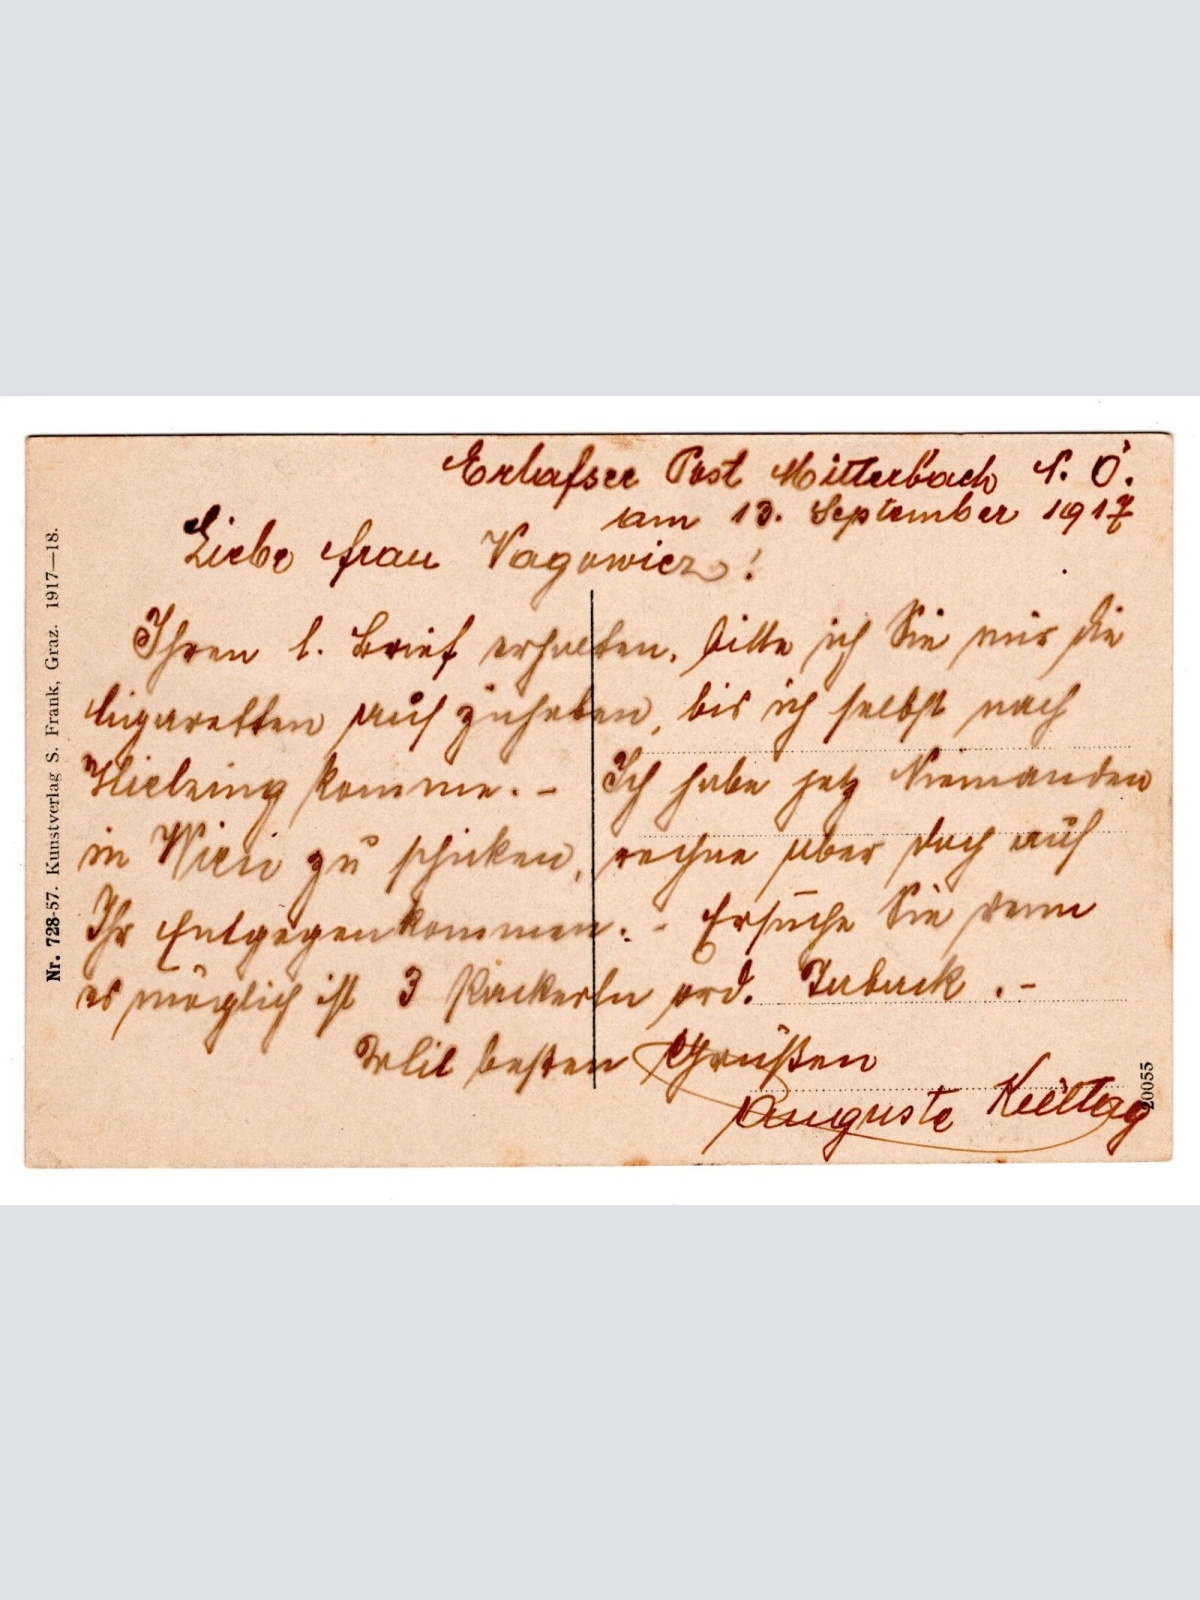 Erlafsee Post Mitterbach N. Ö.
am 13. September 1917
Liebe Frau Vagowicz!
Ihren l. Brief erhalten, bitte ich Sie mir die
Cigaretten auf zuheben, bis ich selbst nach
Hietzing komme. – Ich habe jetz Niemanden
in Wien zu schicken, rechne aber doch auf
Ihr Entgegenkommen. – Ersuche Sie wenn
es möglich ist 3 Packerln ord. Taback . –
Mit besten Grüßen
Auguste
Nr. 728-57. Kunstverlag S. Frank, Graz. 1917—18.
20055